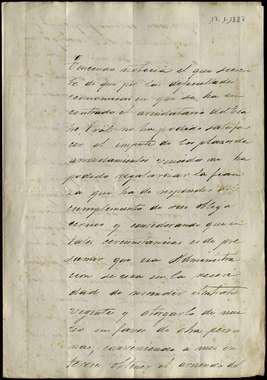 12-1-1887
Teniendo noticia el que suscri-
be de que por las dificultades
economicas en que se ha en-
contrado el arrendatario del Tea-
tro Real no ha podido satisfa-
cer el importe de los plazos de
arrendamiento vencido ni ha
podido regularizar la fian-
za que ha de responder del
cumplimiento de sus obliga-
ciones y considerando que en
tales circunstancias es de pre-
sumar que esa Administra
cion se vea en la necesi
dad de rescindir el contrato
vigente y otorgarlo de nue-
vo en favor de otra perso-
na, conviniendo a mis in-
tereses obtener el arriendo del